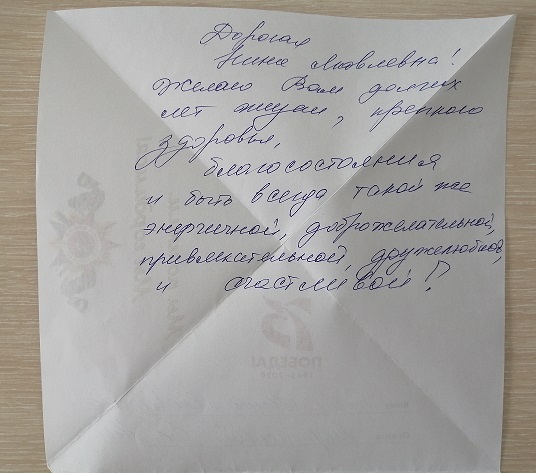 Дорогая
Нина Яковлевна!
Желаю Вам долгих
лет жизни, крепкого
здоровья,
благосостояния
и быть всегда такой же
энергичной, доброжелательной,
привлекательной, дружелюбной,
и счастливой!
75
ПОБЕДА!
1945-2020